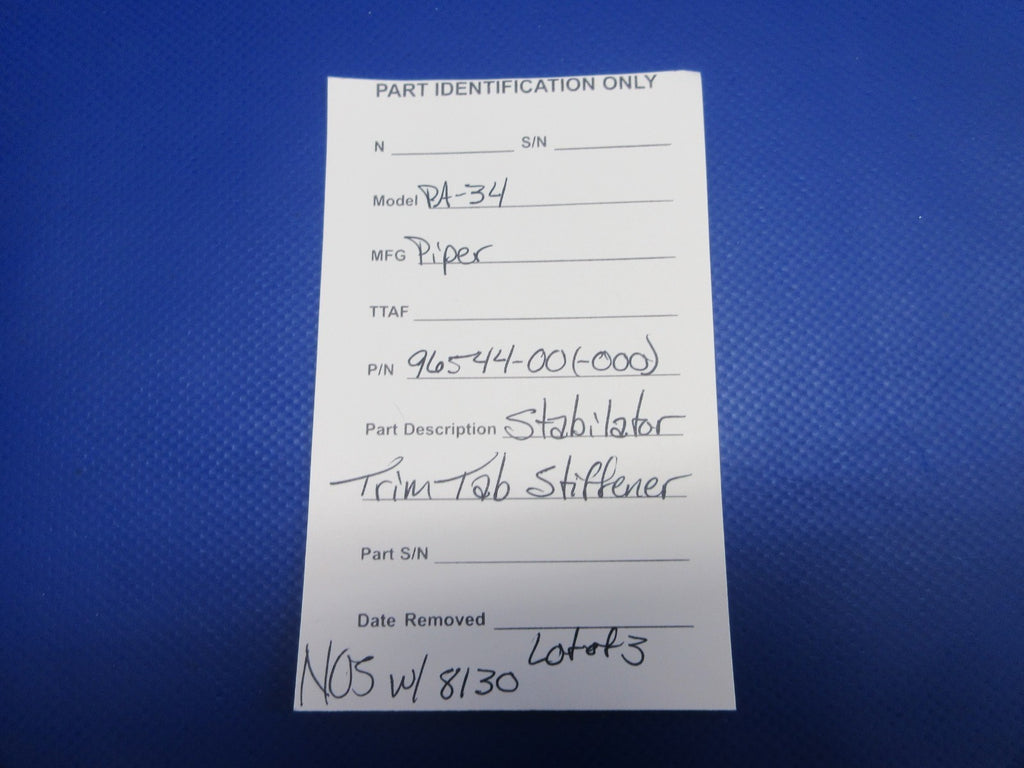 PART IDENTIFICATION ONLY
N S/N
Model PA-34
MFG Piper
TTAF
P/N 96544-00(-000)
Part Description Stabilator
Trim Tab Stiffener
Part S/N
Date Removed
Lot of 3
NOS w/ 8130